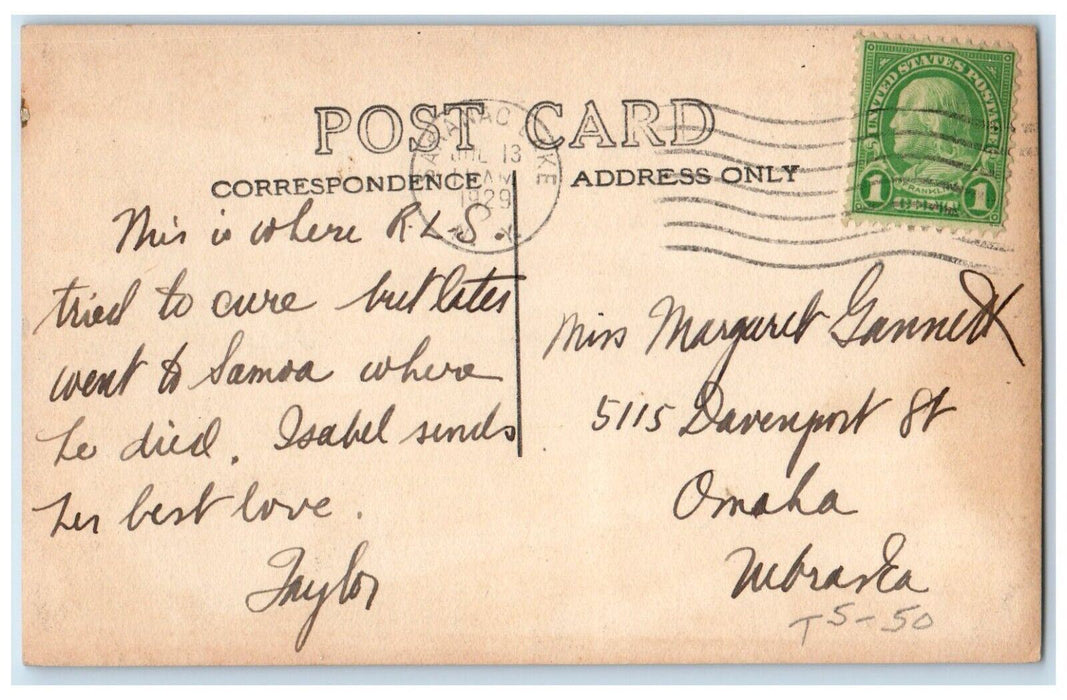 POST CARD
CORRESPONDENCE
ADDRESS ONLY
SARANAC LAKE
JUL 13
AM
1929
N. Y.
UNITED STATES POSTAGE
1 FRANKLIN 1
This is where R.L.S.
tried to cure but later
went to Samoa where
he died. Isabel sends
her best love.
Taylor
Miss Margaret Gannett
5115 Davenport St
Omaha
Nebraska
T5-50